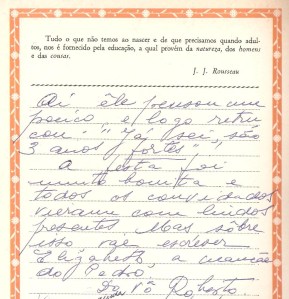 Tudo o que não temos ao nascer e de que precisamos quando adul-
tos, nos é fornecido pela educação, a qual provém da natureza, dos homens
e das cousas.
J. J. Rousseau
Aí êle pensou um
pouco e logo retru
cou: "Já sei, são
3 anos fortes",
A festa foi
muito bonita e
todos os convidados
vieram com lindos
presentes. Mas sôbre
isso, vae escrever
Elizabeth, a mamãe
do Pedro,
Do Vô Roberto